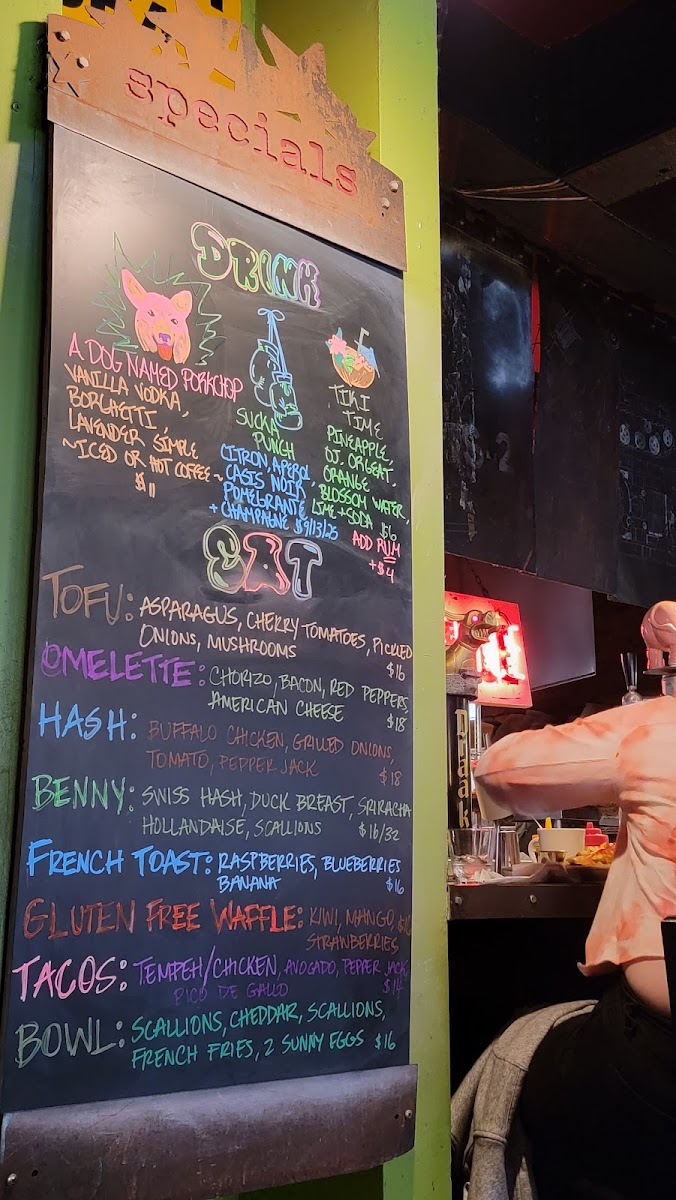 specials
DRINK
A DOG NAMED PORKCHOP
VANILLA VODKA,
BORGHETTI,
LAVENDER SIMPLE
~ICED OR HOT COFFEE~
$11
SUCKA
PUNCH
CITRON, APEROL,
CASIS NOIR,
POMEGRANTE
+ CHAMPAGNE $9/13/25
TIKI
TIME
PINEAPPLE,
OJ, ORGEAT,
ORANGE
BLOSSOM WATER,
LIME + SODA $6
ADD RUM
+$4
EAT
TOFU: ASPARAGUS, CHERRY TOMATOES, PICKLED
ONIONS, MUSHROOMS $16
OMELETTE: CHORIZO, BACON, RED PEPPERS,
AMERICAN CHEESE $18
HASH: BUFFALO CHICKEN, GRILLED ONIONS,
TOMATO, PEPPER JACK $18
BENNY: SWISS HASH, DUCK BREAST, SRIRACHA
HOLLANDAISE, SCALLIONS $16/32
FRENCH TOAST: RASPBERRIES, BLUEBERRIES
BANANA $16
GLUTEN FREE WAFFLE: KIWI, MANGO,
STRAWBERRIES
TACOS: TEMPEH/CHICKEN, AVOCADO, PEPPER JACK,
PICO DE GALLO $14
BOWL: SCALLIONS, CHEDDAR, SCALLIONS,
FRENCH FRIES, 2 SUNNY EGGS $16